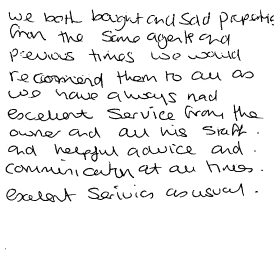 we both bought and sold properties
from the same agents and
previous times we would
recommend them to all as
we have always had
excellent service from the
owner and all his staff.
and helpful advice and
communication at all times.
exelent serivics as usual.